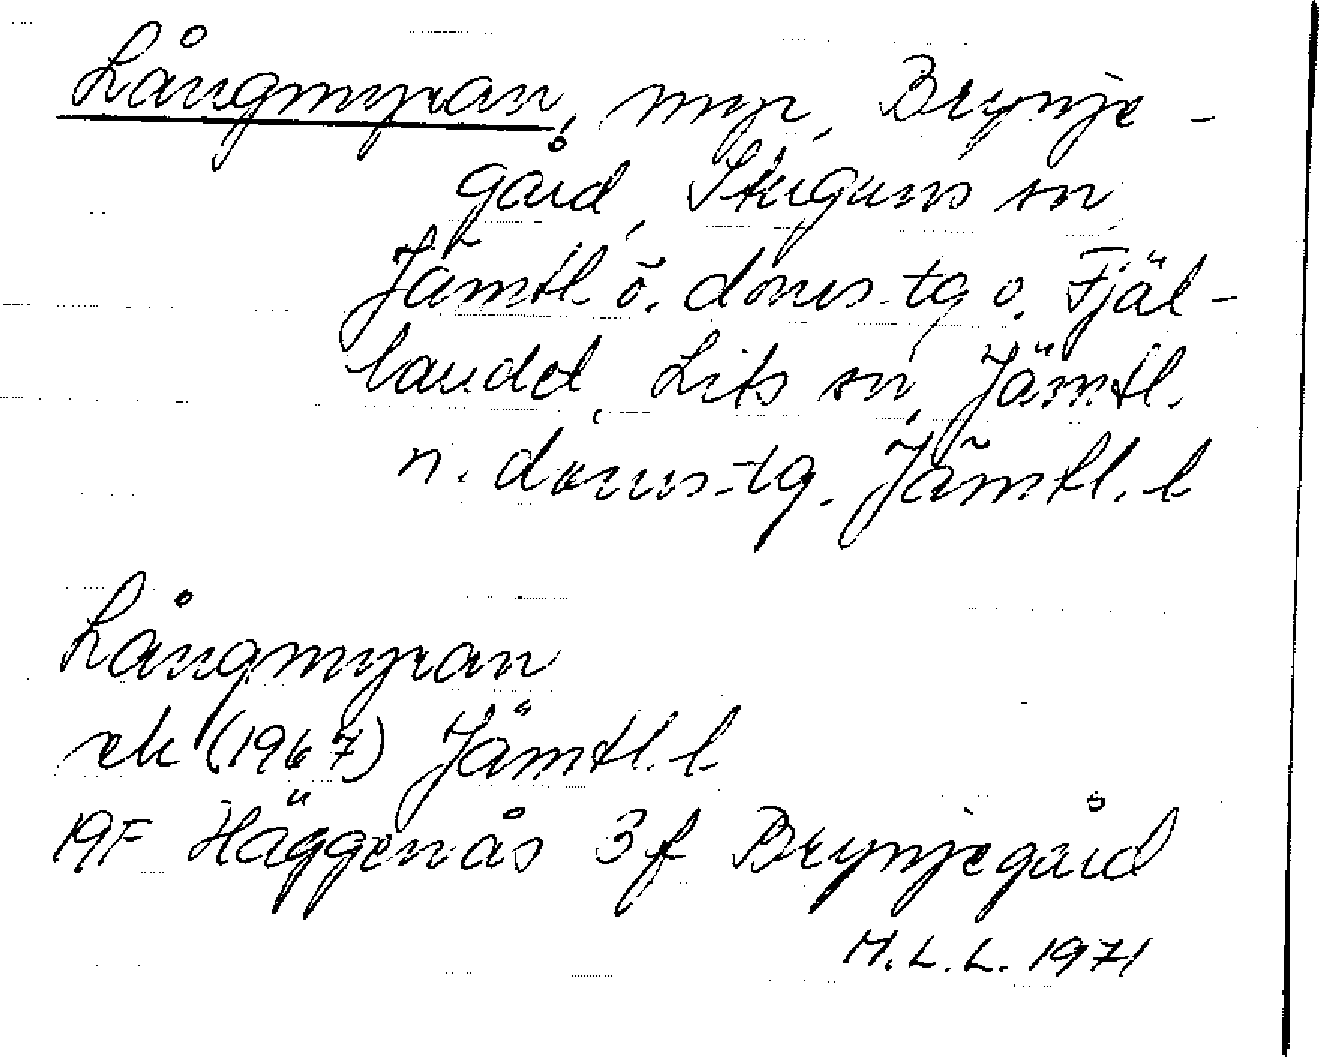 Långmyran, myr, Brynje-
gård, Skyguns sn,
Jämtl. ö. doms.tg o. Fjäl-
landet, Lits sn, Jämtl.
n. doms.tg. Jämtl. l
Långmyran
ek (1967) Jämtl. l
19F Häggenås 3f Brynjegård
M.L.L. 1971